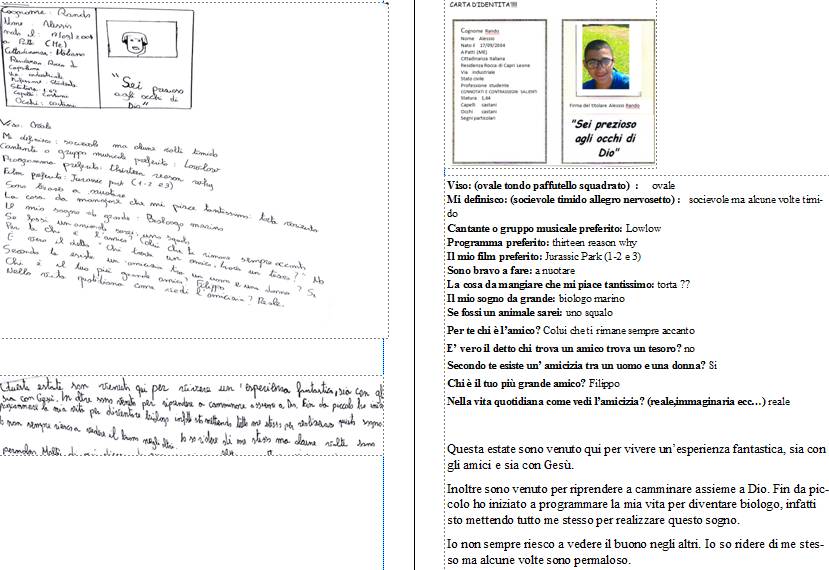 Cognome: Rando
Nome Alessio
nato il: 17/09/2004
a Patti (Me)
Cittadinanza: Italiana
Residenza Rocca di
Via industriale
Professione studente
Statura: 1.64
Capelli: castani
Occhi: castani
"Sei prezioso
agli occhi di
Dio"
Viso: Ovale
Mi definisco: socievole ma alcune volte timido
Cantante o gruppo musicale preferito: Lowlow
Programma preferito: thirteen reason why
Film preferito: Jurassic park (1-2 e 3)
Sono bravo a nuotare
La cosa da mangiare che mi piace tantissimo: torta
Il mio sogno da grande: Biologo marino
Se fossi un animale sarei: uno squalo
Per te chi è l'amico? Colui che ti rimane sempre accanto
È vero il detto "Chi trova un amico trova un tesoro"? No
Secondo te esiste un'amicizia tra un uomo e una donna? Si
Chi è il tuo più grande amico? Filippo
Nella vita quotidiana come vedi l'amicizia? Reale
Questa estate son venuto qui per vivere un'esperienza fantastica, sia con gli
sia con Gesù. Inoltre sono venuto per riprendere a camminare assieme a Dio. Fin da piccolo ho
programmare la mia vita per diventare biologo infatti sto mettendo tutto me stesso per realizzare questo sogno.
Io non sempre riesco a vedere il buono negli altri. Io so ridere di me stesso ma alcune volte sono
CARTA D'IDENTITA'!!!!
Cognome Rando
Nome Alessio
Nato il 17/09/2004
A Patti (ME)
Cittadinanza italiana
Residenza Rocca di Capri Leone
Via industriale
Stato civile
Professione studente
CONNOTATI E CONTRASSEGNI SALIENTI
Statura 1.64
Capelli castani
Occhi castani
Segni particolari
Firma del titolare Alessio Rando
"Sei prezioso
agli occhi di
Dio"
Viso: (ovale tondo paffutello squadrato) : ovale
Mi definisco: (socievole timido allegro nervosetto) : socievole ma alcune volte timi-
do
Cantante o gruppo musicale preferito: Lowlow
Programma preferito: thirteen reason why
Il mio film preferito: Jurassic Park (1-2 e 3)
Sono bravo a fare: a nuotare
La cosa da mangiare che mi piace tantissimo: torta ??
Il mio sogno da grande: biologo marino
Se fossi un animale sarei: uno squalo
Per te chi è l'amico? Colui che ti rimane sempre accanto
E' vero il detto chi trova un amico trova un tesoro? no
Secondo te esiste un' amicizia tra un uomo e una donna? Si
Chi è il tuo più grande amico? Filippo
Nella vita quotidiana come vedi l'amicizia? (reale,immaginaria ecc...) reale
Questa estate sono venuto qui per vivere un'esperienza fantastica, sia con
gli amici e sia con Gesù.
Inoltre sono venuto per riprendere a camminare assieme a Dio. Fin da pic-
colo ho iniziato a programmare la mia vita per diventare biologo, infatti
sto mettendo tutto me stesso per realizzare questo sogno.
Io non sempre riesco a vedere il buono negli altri. Io so ridere di me stes-
so ma alcune volte sono permaloso.